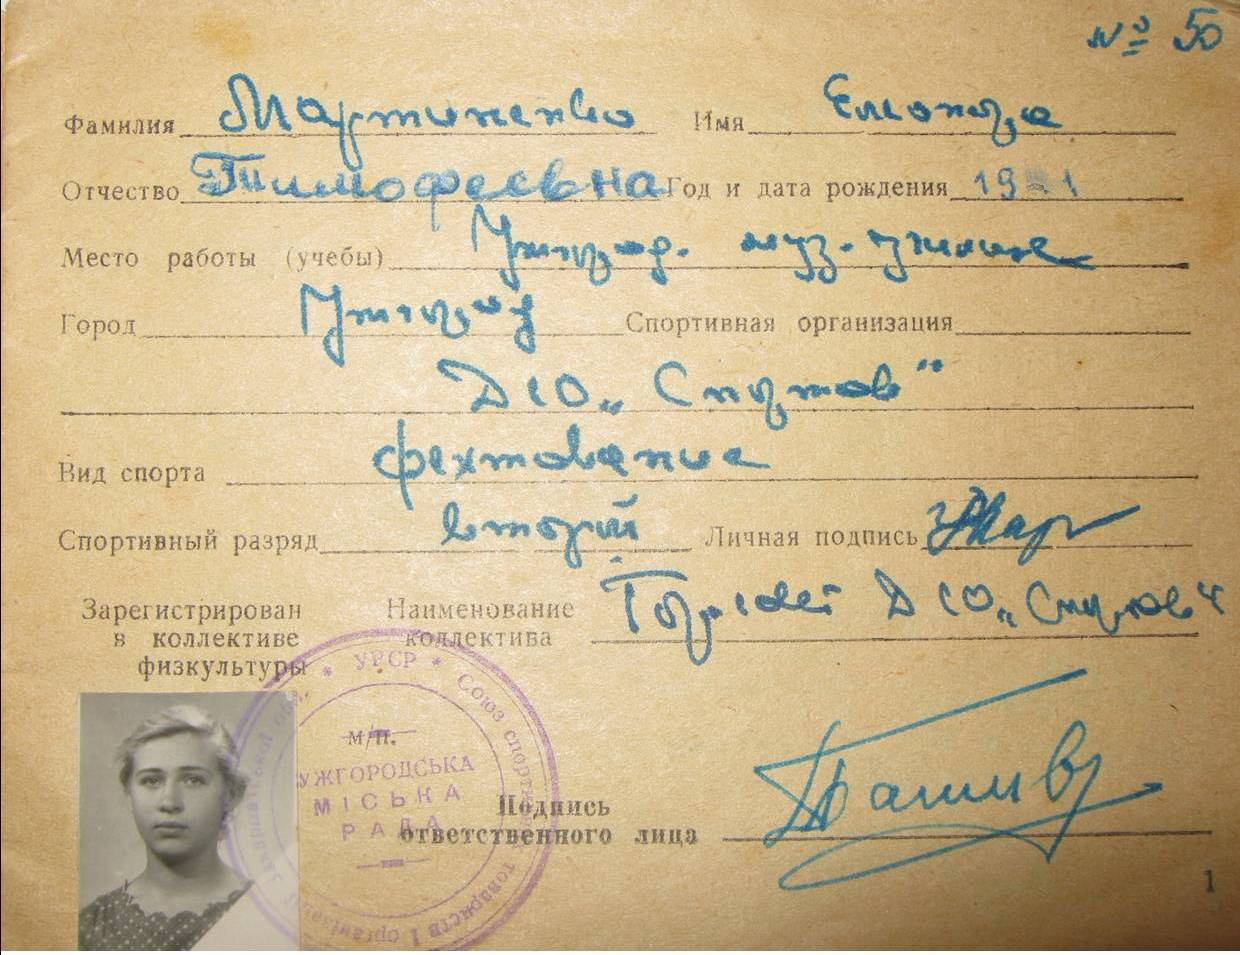 № 50
Фамилия Мартиненко Имя Елеонора
Отчество Тимофеевна Год и дата рождения 19 1
Место работы (учебы) Ужгород. муз. училище
Город Ужгород Спортивная организация
ДСО „Спартак"
Вид спорта фехтование
Спортивный разряд второй Личная подпись
Зарегистрирован
в коллективе
физкультуры
Наименование
коллектива
Горсовет ДСО „Спартак"
* УРСР * Союз спортивних товариств і організацій
м/п.
УЖГОРОДСЬКА
МІСЬКА
РАДА
Подпись
ответственного лица
1